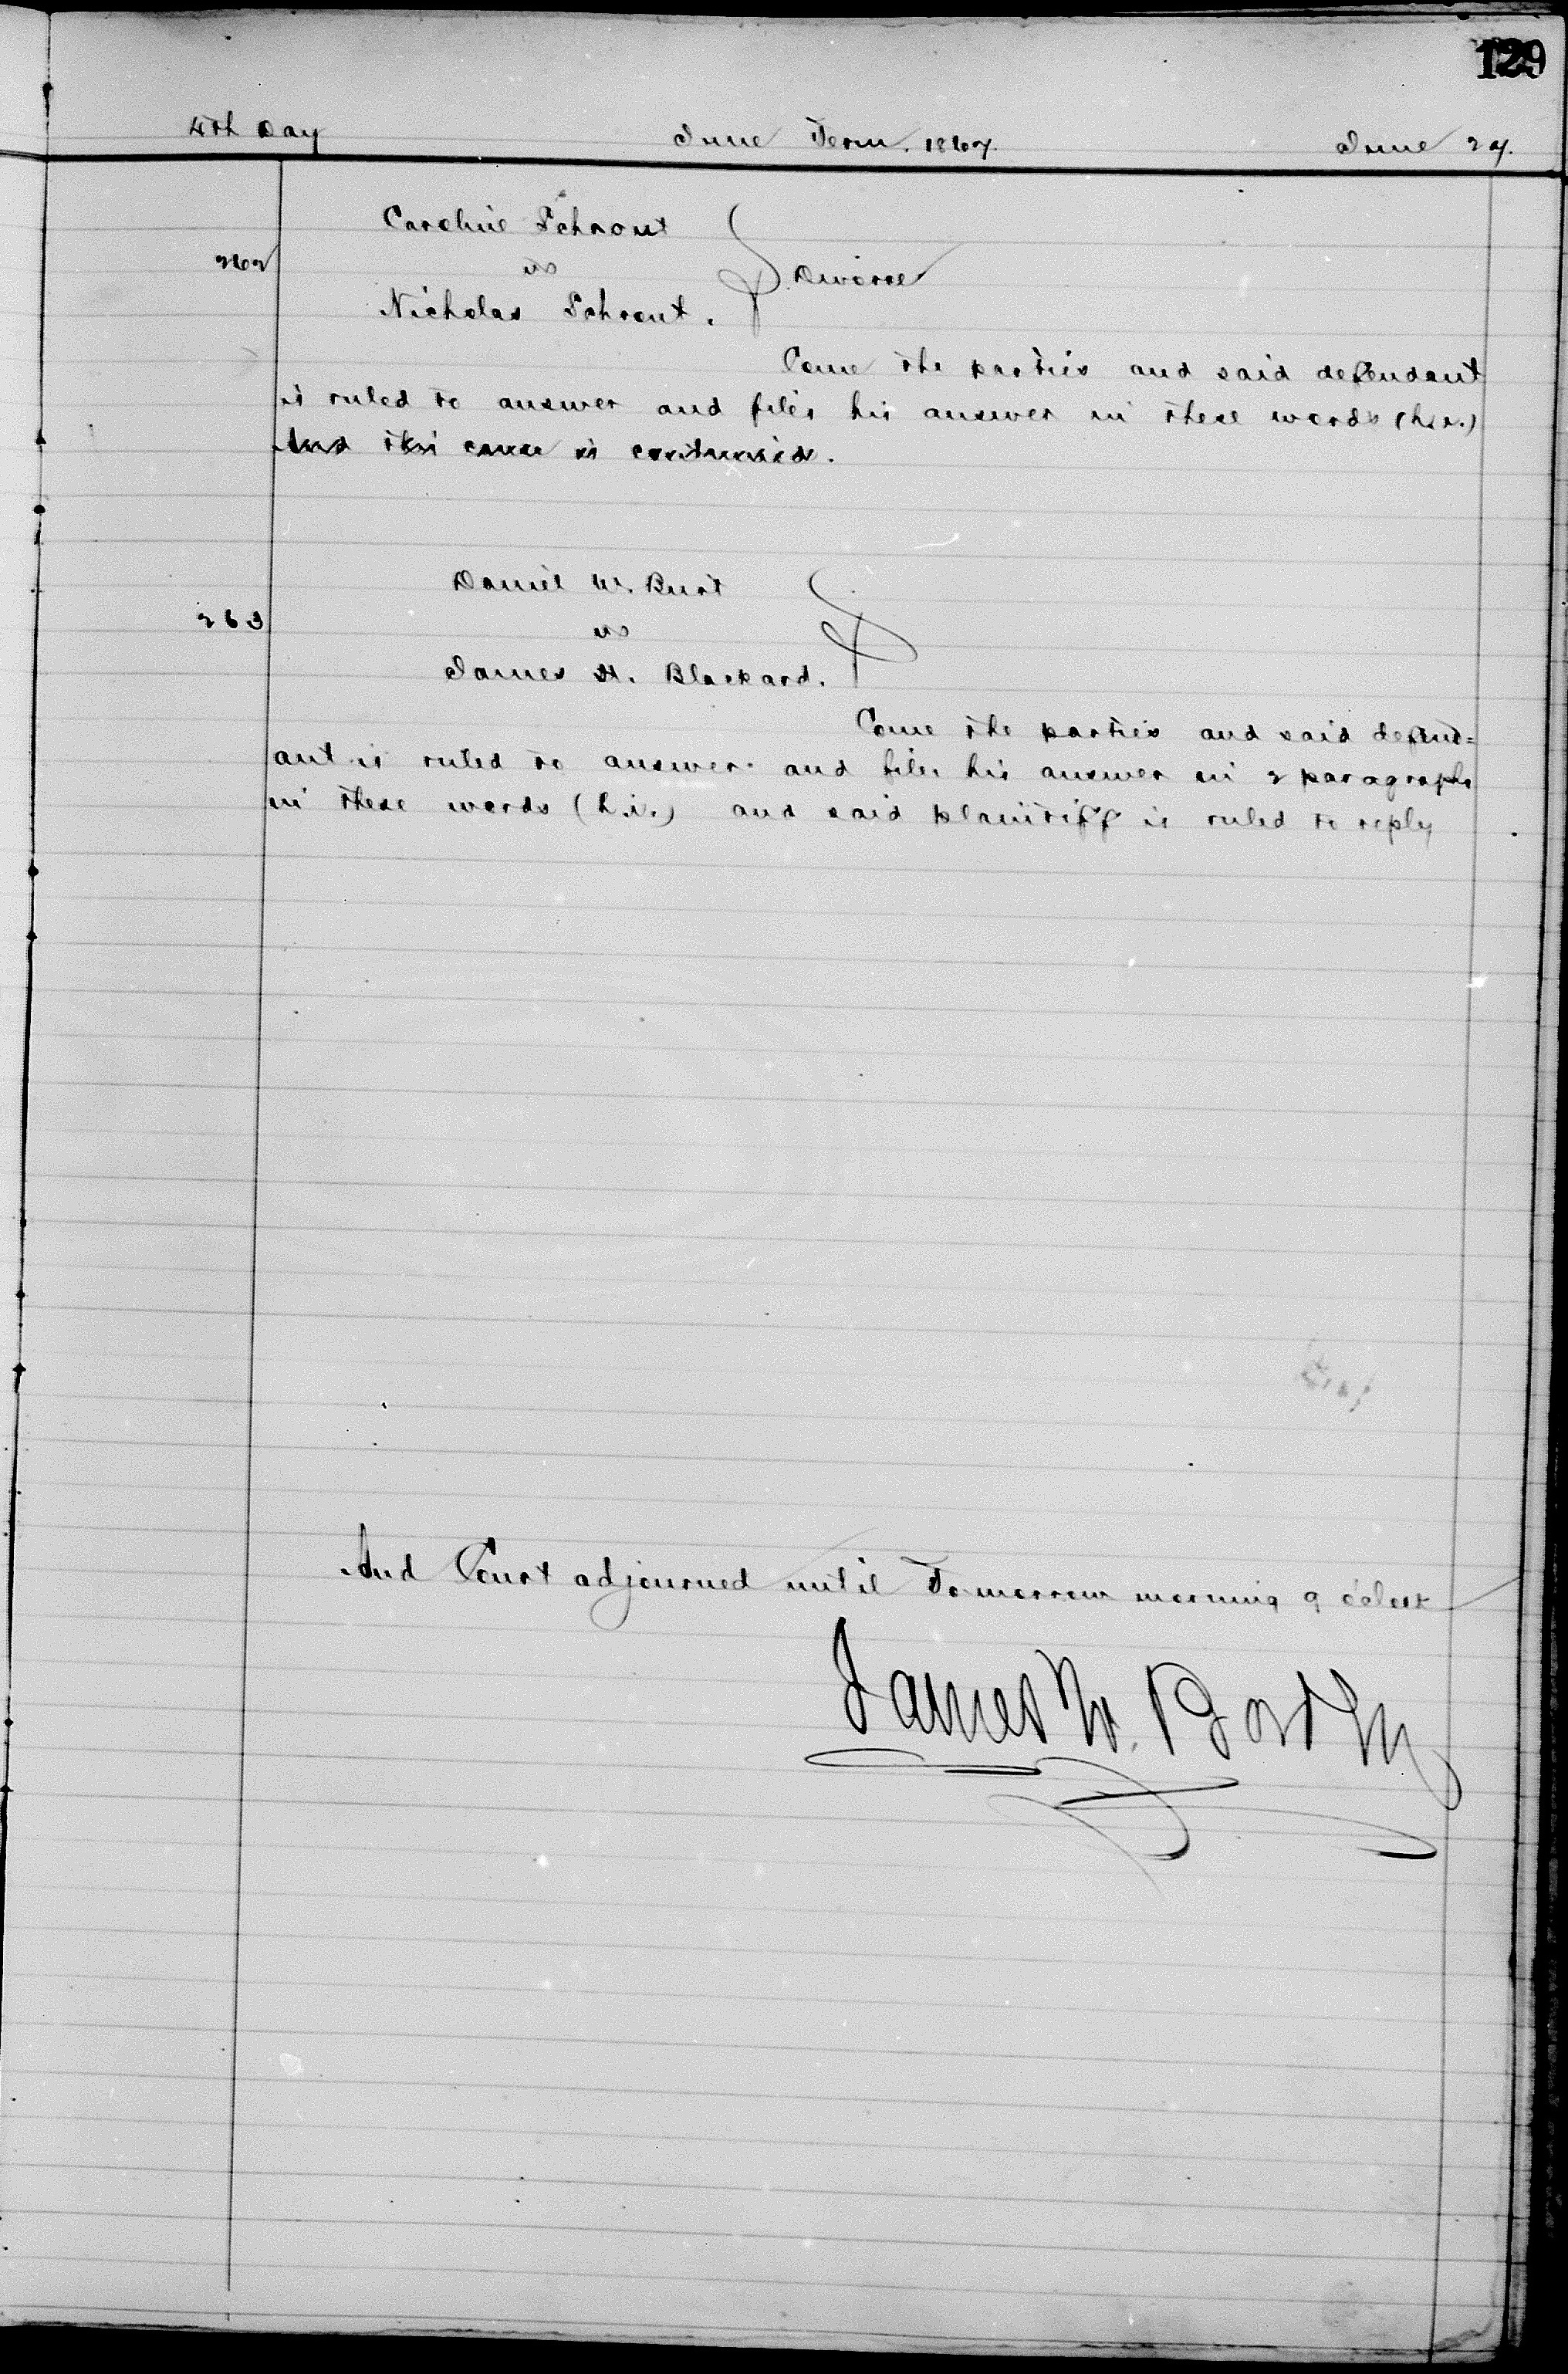 129
4th Day June Term. 1867. June 27.
Caroline Schrout
262 vs Divorce
Nicholas Schrout.
Come the parties and said defendant
is ruled to answer and files his answer in these words (h.i.)
And this cause is continued.
Daniel W. Burt
263 vs
James H. Blackard.
Come the parties and said defend=
ant is ruled to answer and files his answer in 2 paragraphs
in these words (h.i.) and said plaintiff is ruled to reply
And Court adjourned until Tomorrow morning 9 oclock
James W.